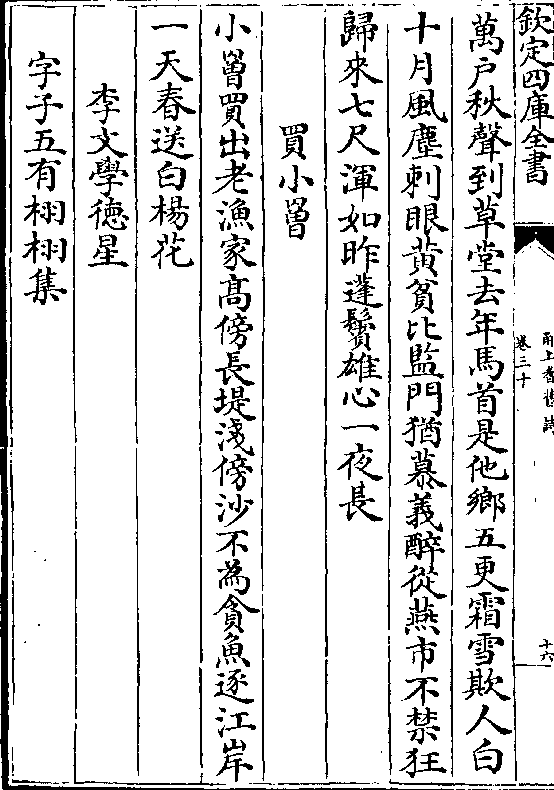 欽定四庫全書
甬上耆舊詩
卷三十
十六
萬户秋聲到草堂去年馬首是他鄉五更霜雪欺人白
十月風塵刺眼黃貧比監門猶慕義醉從燕市不禁狂
歸來七尺渾如昨蓬鬢雄心一夜長
買小罾
小罾買出老漁家髙傍長堤淺傍沙不為貪魚逐江岸
一天春送白楊花
李文學徳星
字子五有栩栩集